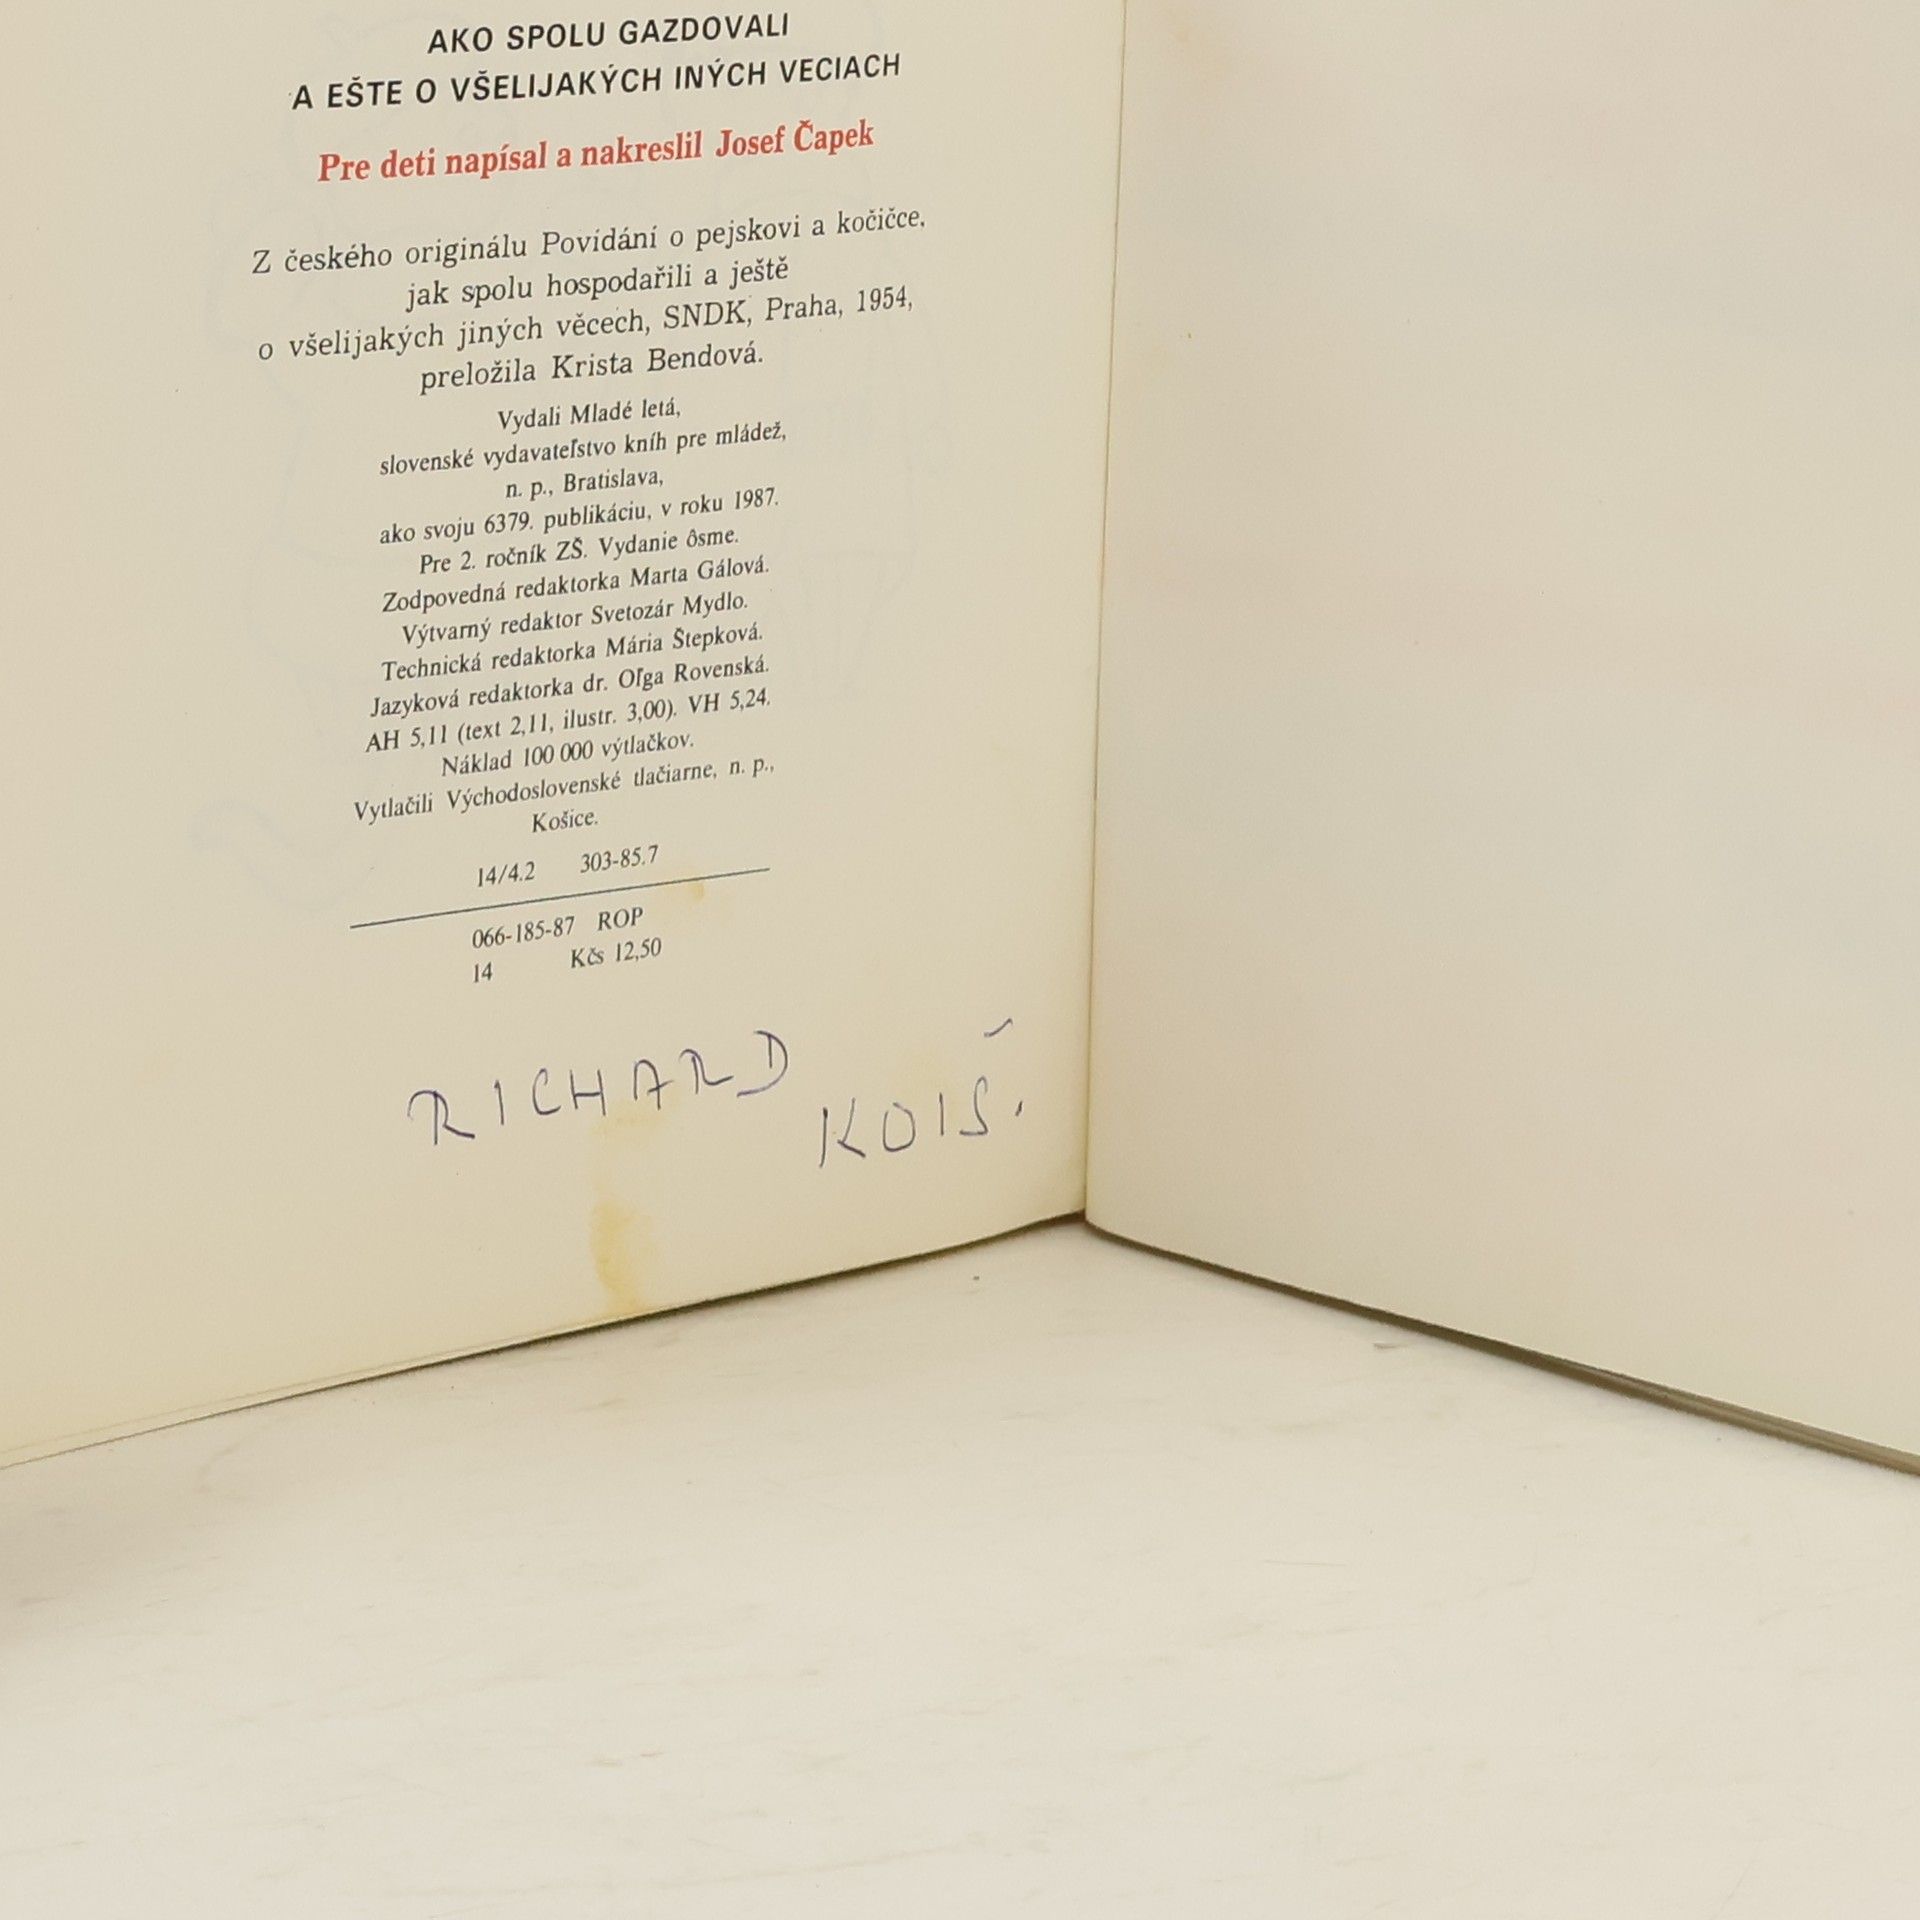 AKO SPOLU GAZDOVALI
A EŠTE O VŠELIJAKÝCH INÝCH VECIACH
Pre deti napísal a nakreslil Josef Čapek
Z českého originálu Povídání o pejskovi a kočičce,
jak spolu hospodařili a ještě
o všelijakých jiných věcech, SNDK, Praha, 1954,
preložila Krista Bendová.
Vydali Mladé letá,
slovenské vydavateľstvo kníh pre mládež,
n. p., Bratislava,
ako svoju 6379. publikáciu, v roku 1987.
Pre 2. ročník ZŠ. Vydanie ôsme.
Zodpovedná redaktorka Marta Gálová.
Výtvarný redaktor Svetozár Mydlo.
Technická redaktorka Mária Štepková.
Jazyková redaktorka dr. Oľga Rovenská.
AH 5,11 (text 2,11, ilustr. 3,00). VH 5,24.
Náklad 100 000 výtlačkov.
Vytlačili Východoslovenské tlačiarne, n. p.,
Košice.
14/4.2 303-85.7
066-185-87 ROP
14 Kčs 12,50
RICHARD
KOIŠ.